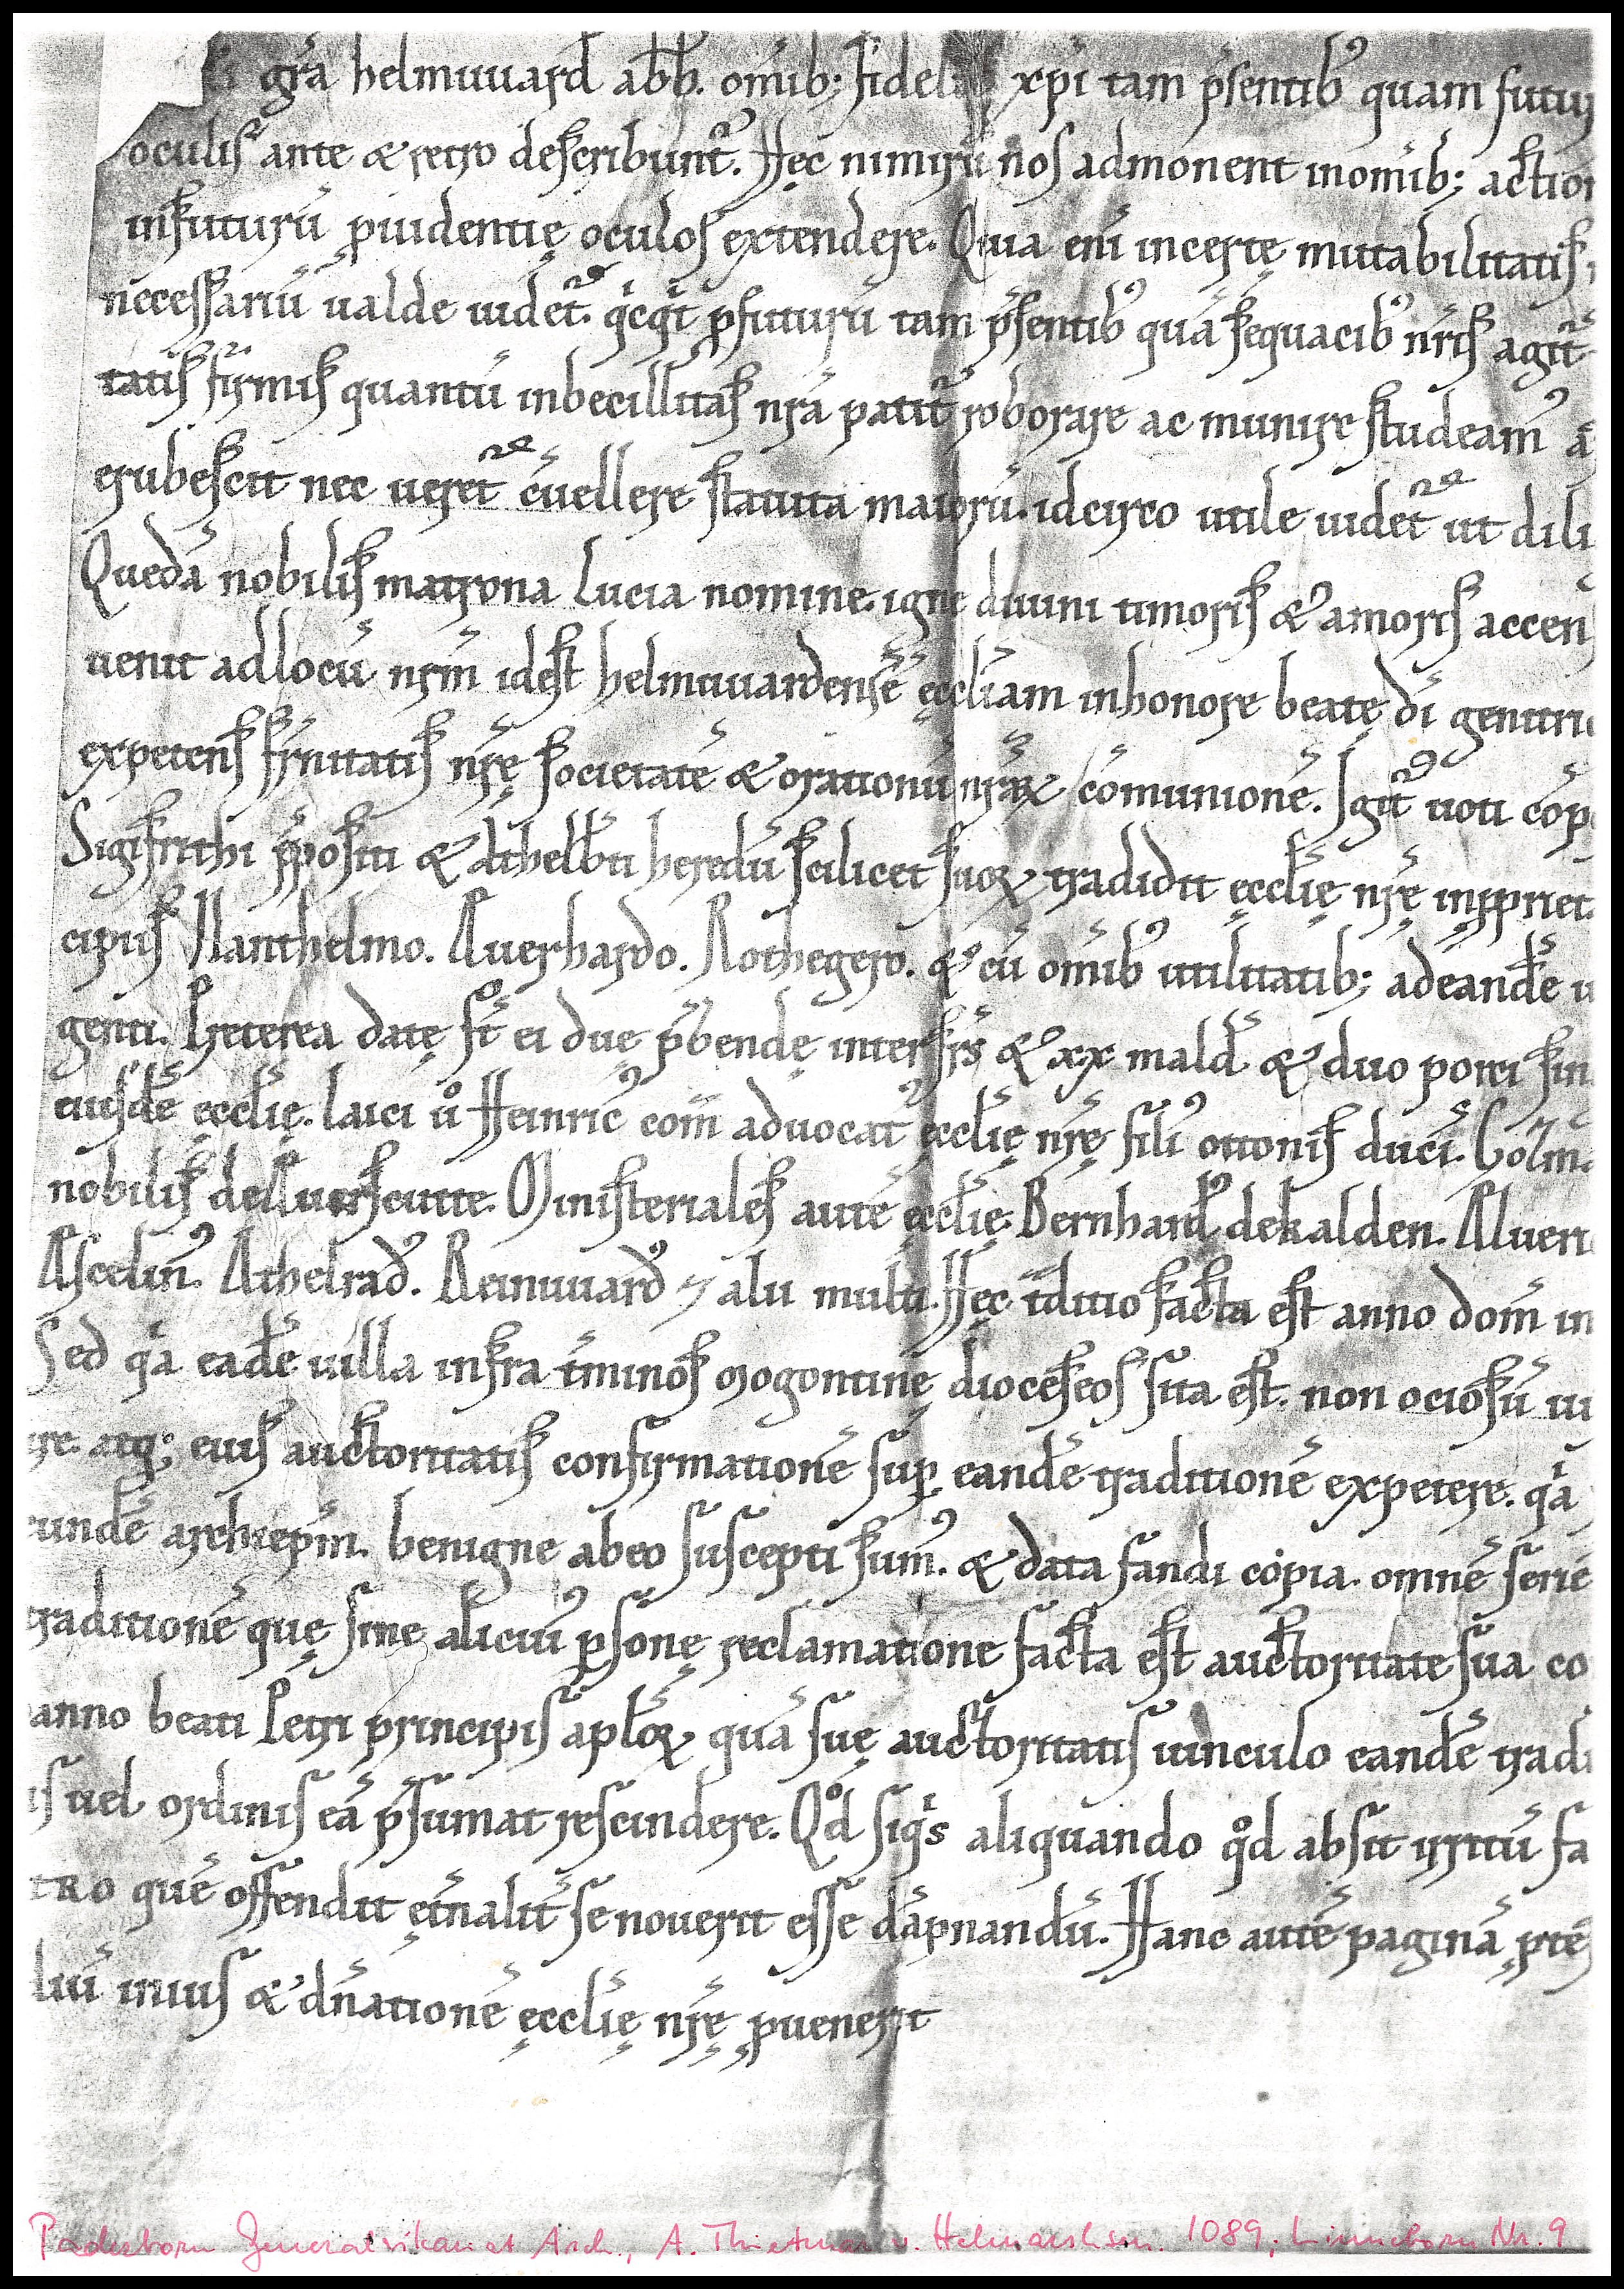 gr̄a helmuuard abb. om̄ib; fidel xp̄i tam p̄sentib' quam futur
oculis ante & retro describunt̄. Hęc nimirū nos admonent in om̄ib; action
in futurū p̱uidentię oculos extendere. Quia eni̅ incertę mutabilitatis
necessariū ualde uidet̄. qͥcqͥt p̱futurū tam p̄sentib' quā sequacib' nr̄is agit̄
tatis firmis quantū inbecillitas nr̄a patit̄ roborare ac munire studeam'
erubescit nec ueret̄ c̄uellere statuta maiorū. idcirco utile uidet̄ ut dili
Quedā nobilis matrona Lucia nomine. igne diuini timoris & amoris accen
uenit ad locū nr̄m id est helmuuardensē ęccl̄iam in honore beatę dī genitri
expetens fr̄nitatis nr̄ę societatē & orationū nr̄aꝝ cōmunionē. Igit̄ uoti cōp
Sigifrithi p̄positi & Athelb̄ti heredū scilicet suoꝝ tradidit ęccl̄ię nr̄ę in p̱priet
cipiis Nanthelmo. Auerhardo. Rothegero. & cū om̄ib' utilitatib; ad eandē
genti. Pretereа datę st̄ ei duę p̄bendę inter fr̄s & xx mald̄ & duo porci sin
eiusdē ęccl̄ię. laici u° Heinric' com̄ aduocat' ęccl̄ię nr̄ę filī' ottonis duci̅.
nobilis de Auerscutte. Ministeriales autē ęccl̄ię. Bernhard' de kalden. Aluer
Ascelin'. Athelrad'. Reinuuard' ⁊ alii multi. Hęc t̄ditio facta est anno dom̄ in
Sed qͣ eadē uilla infra t̄minos Mogontinę dioceseos sita est. non ociosū ui
re. atq; eius auctoritatis confirmationē sup̱ eandē traditionē expetere. qͣ
eundē archiep̄m. benigne ab eo suscepti sum'. & data fandi copia. omnē seriē
traditionē quę sine alicui' p̱sonę reclamatione facta est auctoritate sua co
anno beati Petri principis ap̄loꝝ quā suę auctoritatis uinculo eandē tradi
is uel ordinis eā p̄sumat rescindere. Qd̊ siqͥs aliquando qd̊ absit irritū fa
tRo quē offendit ęt̄nalit̄ se nouerit esse dāpnandū. Hanc autē paginā p̱te
liū in ius & dn̄ationē ęccl̄ię nr̄ę p̱uenerit
Paderborn Generalvikariat Arch., A. Thietmar v. Helmarshsn. 1089, Linneborn Nr. 9